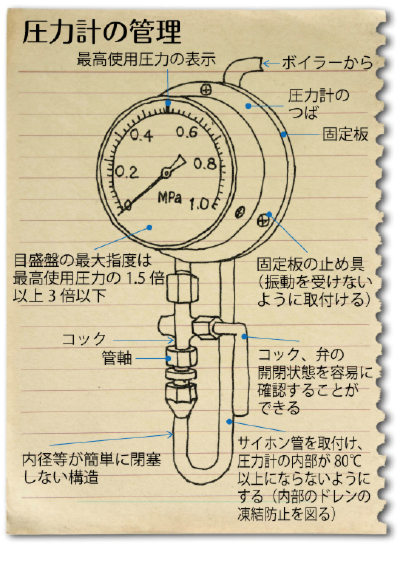 圧力計の管理
最高使用圧力の表示
ボイラーから
圧力計の
つば
固定板
0
0.2
0.4
0.6
0.8
1.0
MPa
目盛盤の最大指度は
最高使用圧力の1.5倍
以上3倍以下
固定板の止め具
（振動を受けない
ように取付ける）
コック
管軸
コック、弁の
開閉状態を容易に
確認することが
できる
内径等が簡単に閉塞
しない構造
サイホン管を取付け、
圧力計の内部が80℃
以上にならないように
する（内部のドレンの
凍結防止を図る）